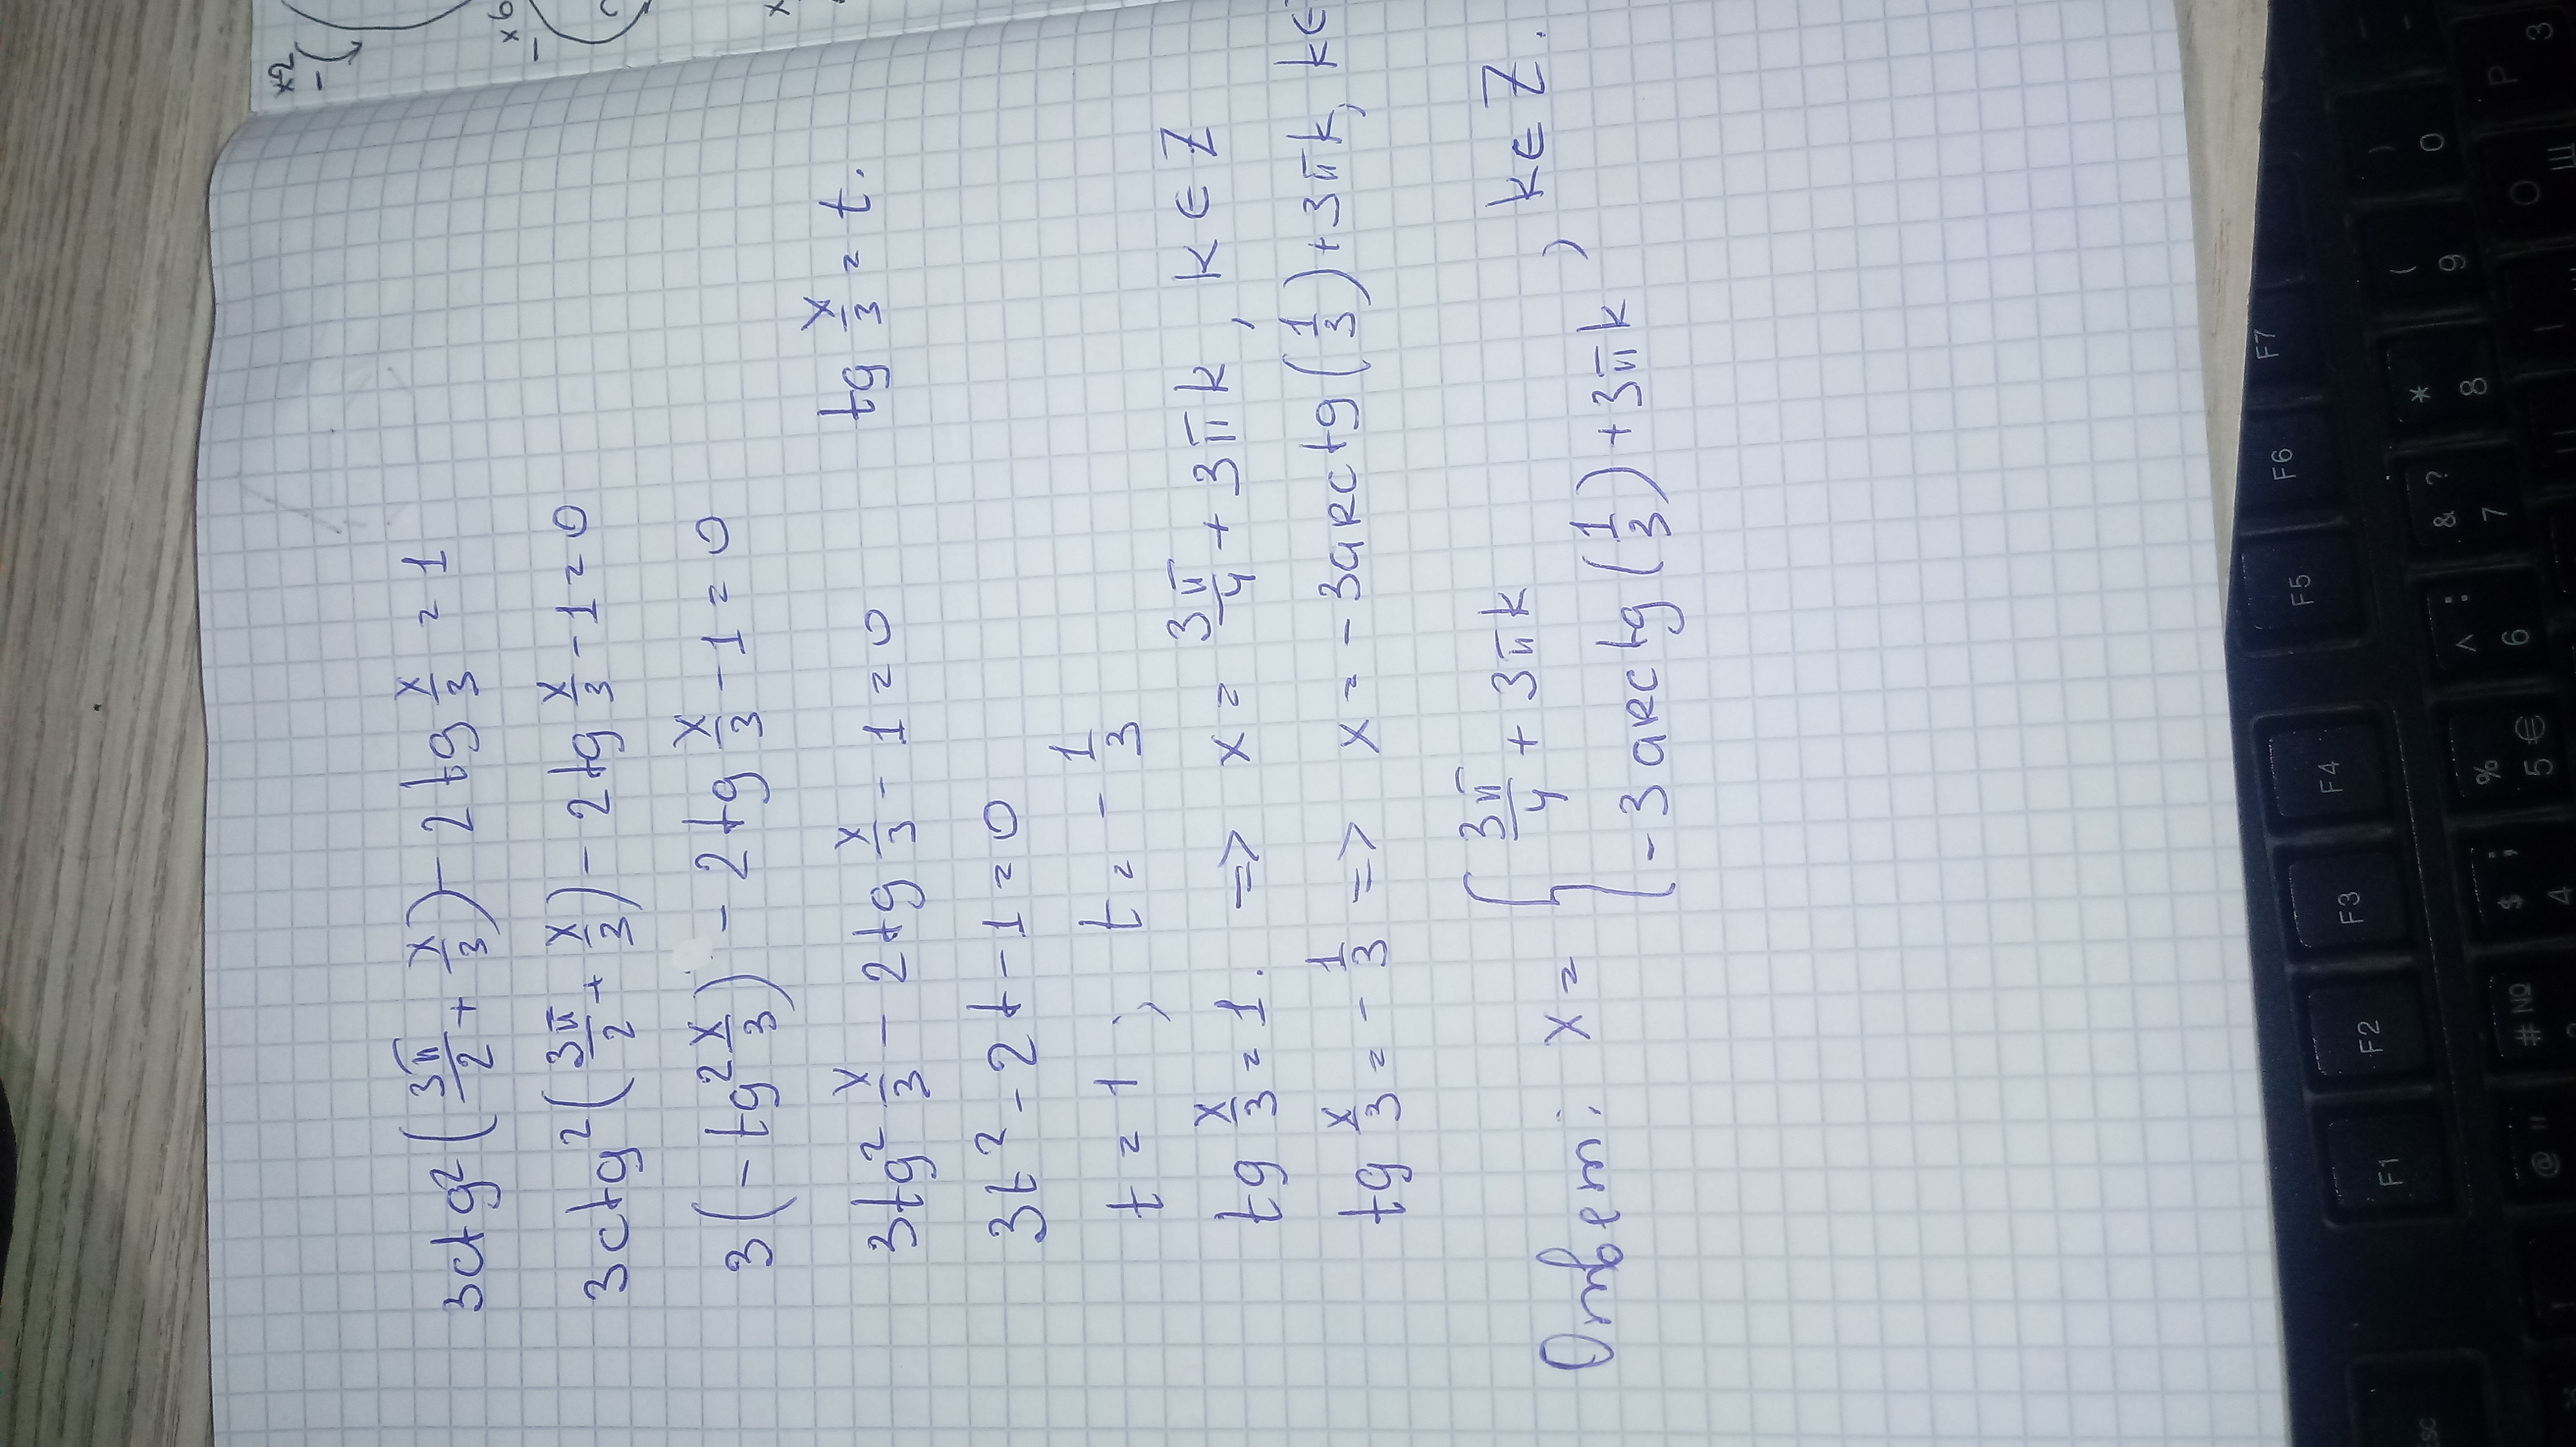 3ctg²(3π/2 + x/3) - 2tg x/3 = 1
3ctg²(3π/2 + x/3) - 2tg x/3 - 1 = 0
3(-tg² x/3) - 2tg x/3 - 1 = 0
3tg² x/3 - 2tg x/3 - 1 = 0 tg x/3 = t.
3t² - 2t - 1 = 0
t = 1, t = -1/3
tg x/3 = 1. => x = 3π/4 + 3πk, k ∈ Z
tg x/3 = -1/3 => x = -3arctg(1/3) + 3πk, k ∈
Ответ: x = { 3π/4 + 3πk
-3arctg(1/3) + 3πk , k ∈ Z.
x2
-
x6
-
x
F1
F2
F3
F4
F5
F6
F7
@ "
# №
$ ; 4
% 5 €
^ : 6
& ? 7
* 8
( 9
) 0
O Щ
P З